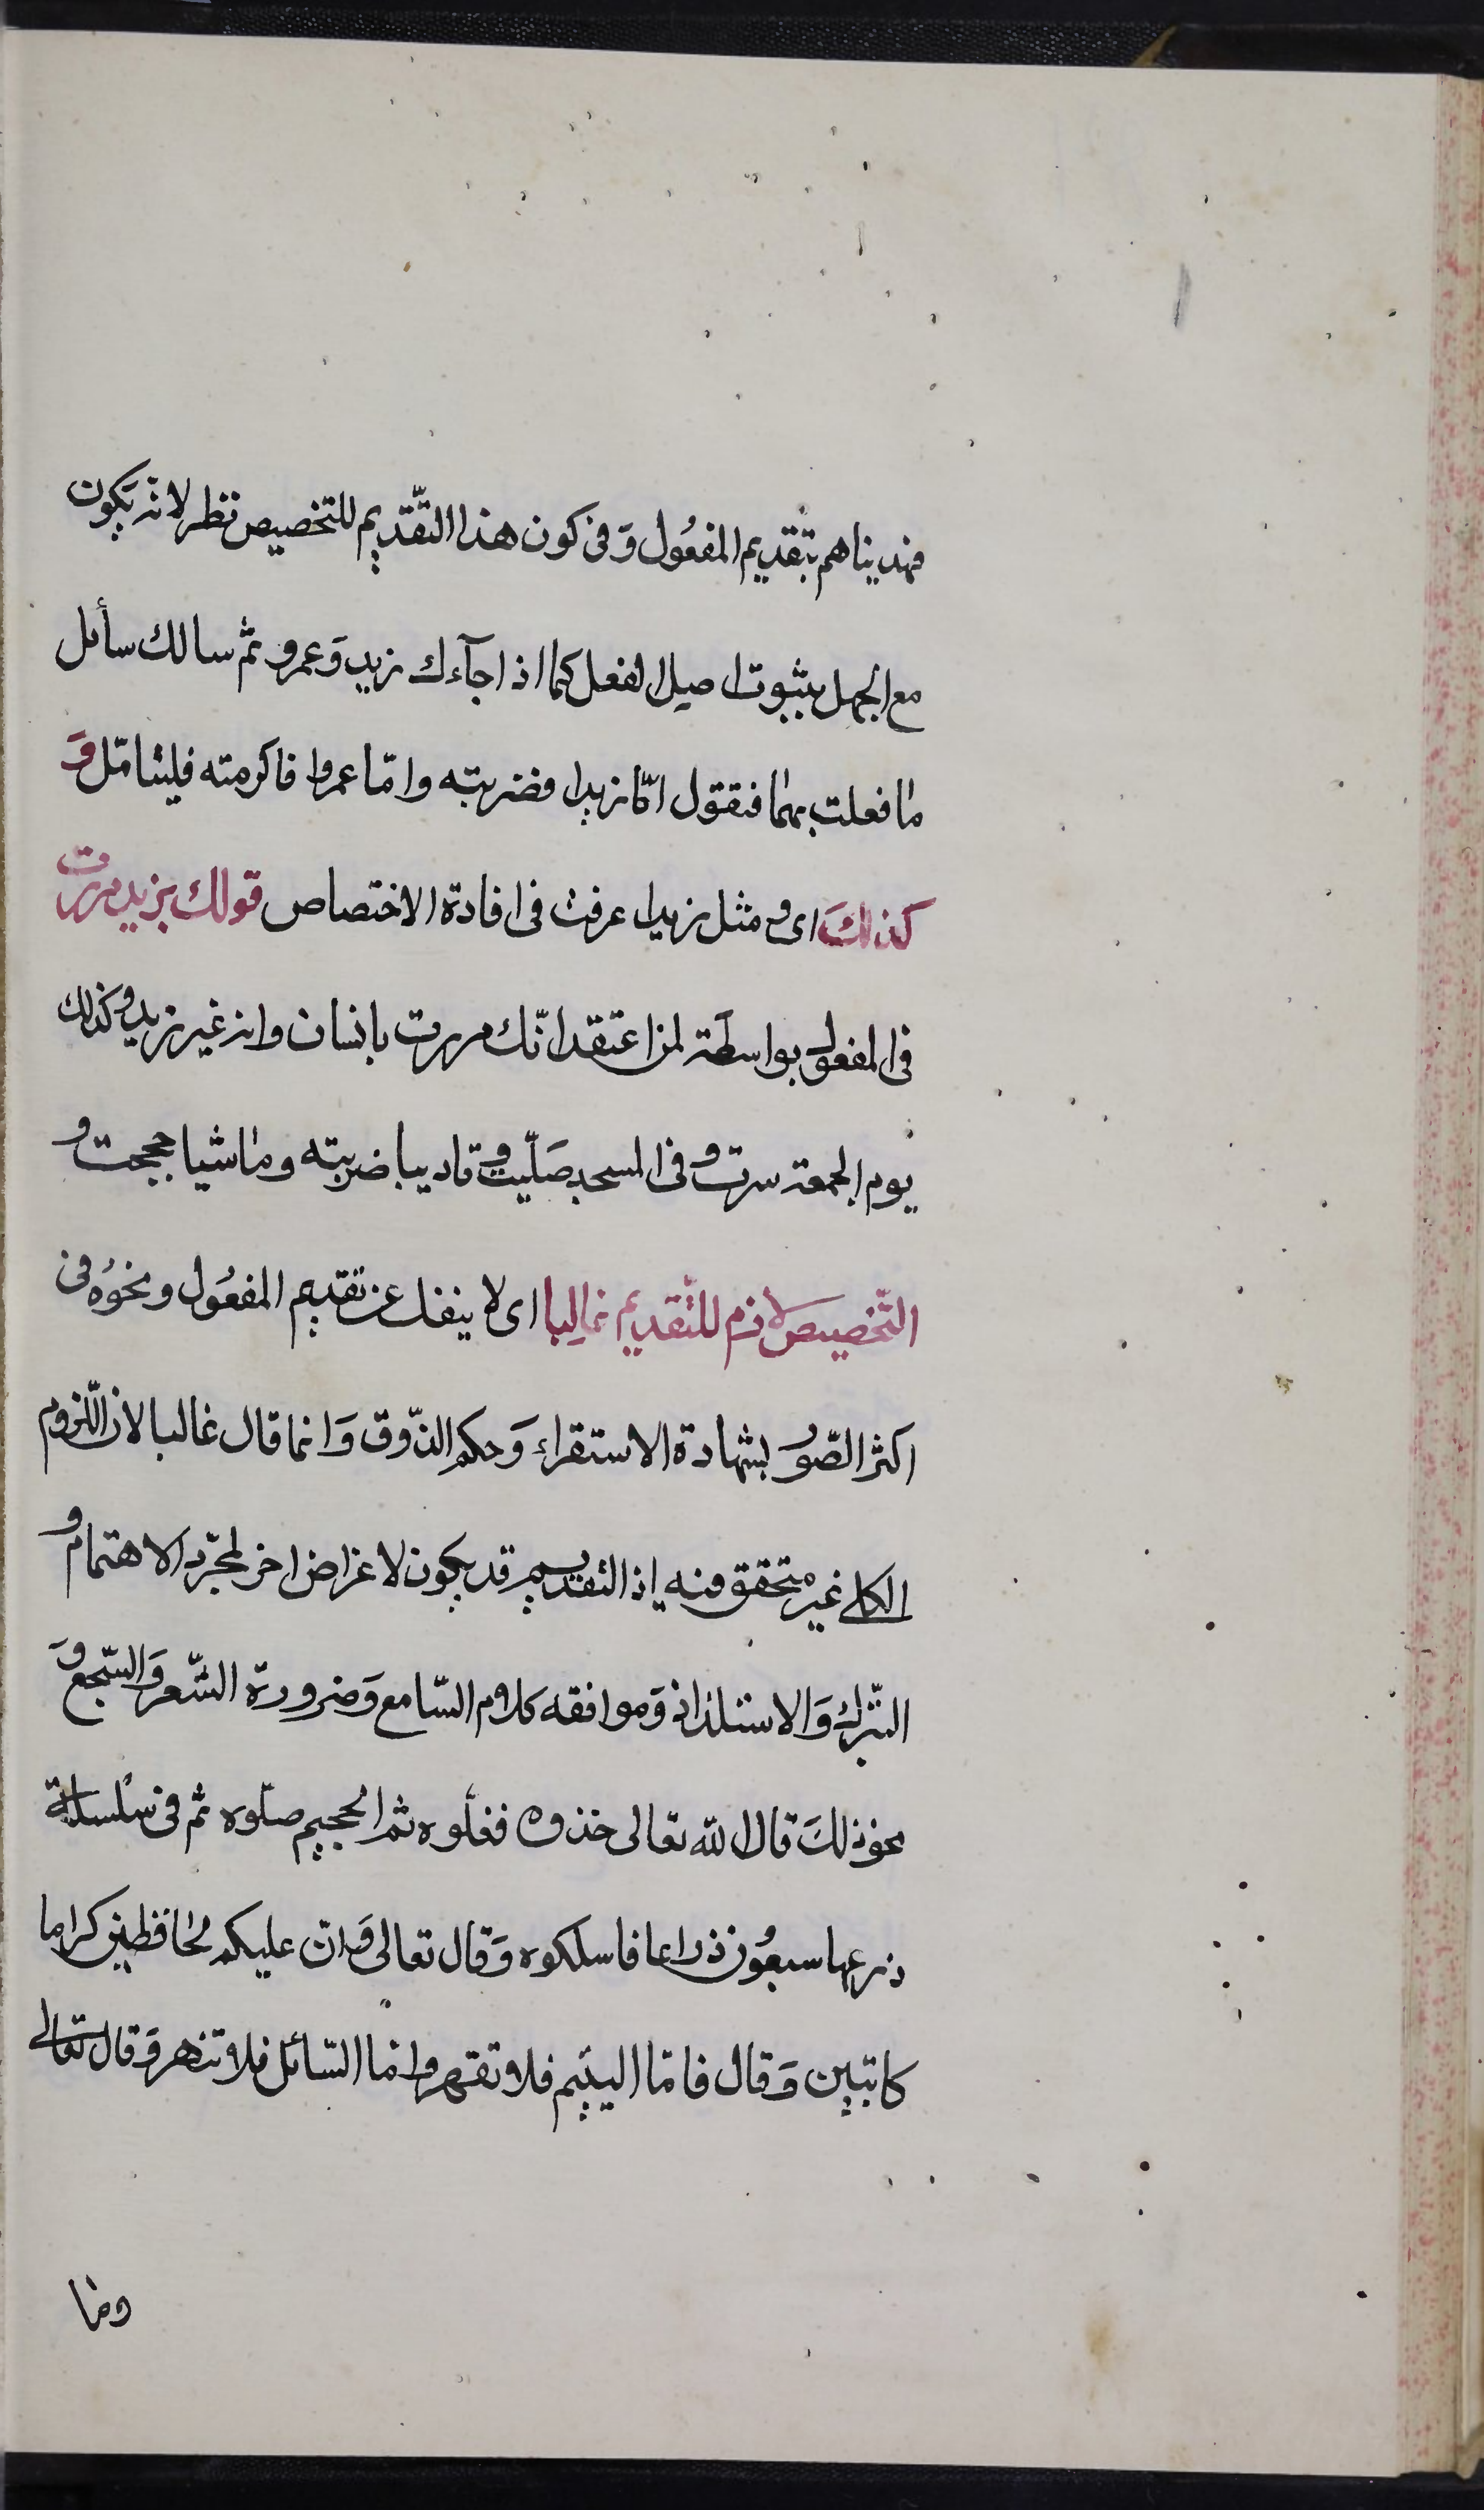 فهديناهم بتقديم المفعُول وَفى كون هذا التّقديم للتخصيص نظر لانه يكون
مع الجهل بثبوت اصل الفعل كما اذا جآءك زيد وَعمرو ثمّ سالك سائل
ما فعلت بهما فتقول امّا زيدا فضربته وامّا عمروا فاكرمته فليتامّل وَ
كذلكَ اى ومثل زيدا عرفت فى افادة الاختصاص قولك بزيد مررت
فى المفعول بواسطة لمن اعتقد انّك مررت بانسان وانه غير زيد وكذلك
يوم الجمعة سرت وفى المسجد صَلّيت وتاديبا ضربته وماشيا حججت و
التّخصيص لازم للتّقديم غالِبا اى لا ينفك عن تقديم المفعُول ونحوُه فى
اكثر الصّور بشهادة الاستقراء وَحكم الذّوق وَانما قال غالبا لان اللّزوم
الكلى غير متحقق فيه اذ التقديم قد يكون لاغراض اخر لمجرّد الاهتمام و
التبّرك وَالاستلذاذ وَموافقه كلام السّامع وَضرورة الشّعر وَالسّجع وَ
نحو ذلكَ قال الله تعالى خذوه فغلّوه ثم الجحيم صلّوه ثم فى سلسلة
ذرعها سبعُون ذراعا فاسلكوه وَقال تعالى وَان عليكم لحافظين كراما
كاتبين وَقال فامّا اليتيم فلا تقهر واما السّائل فلا تنهر وَقال تعالى
وما